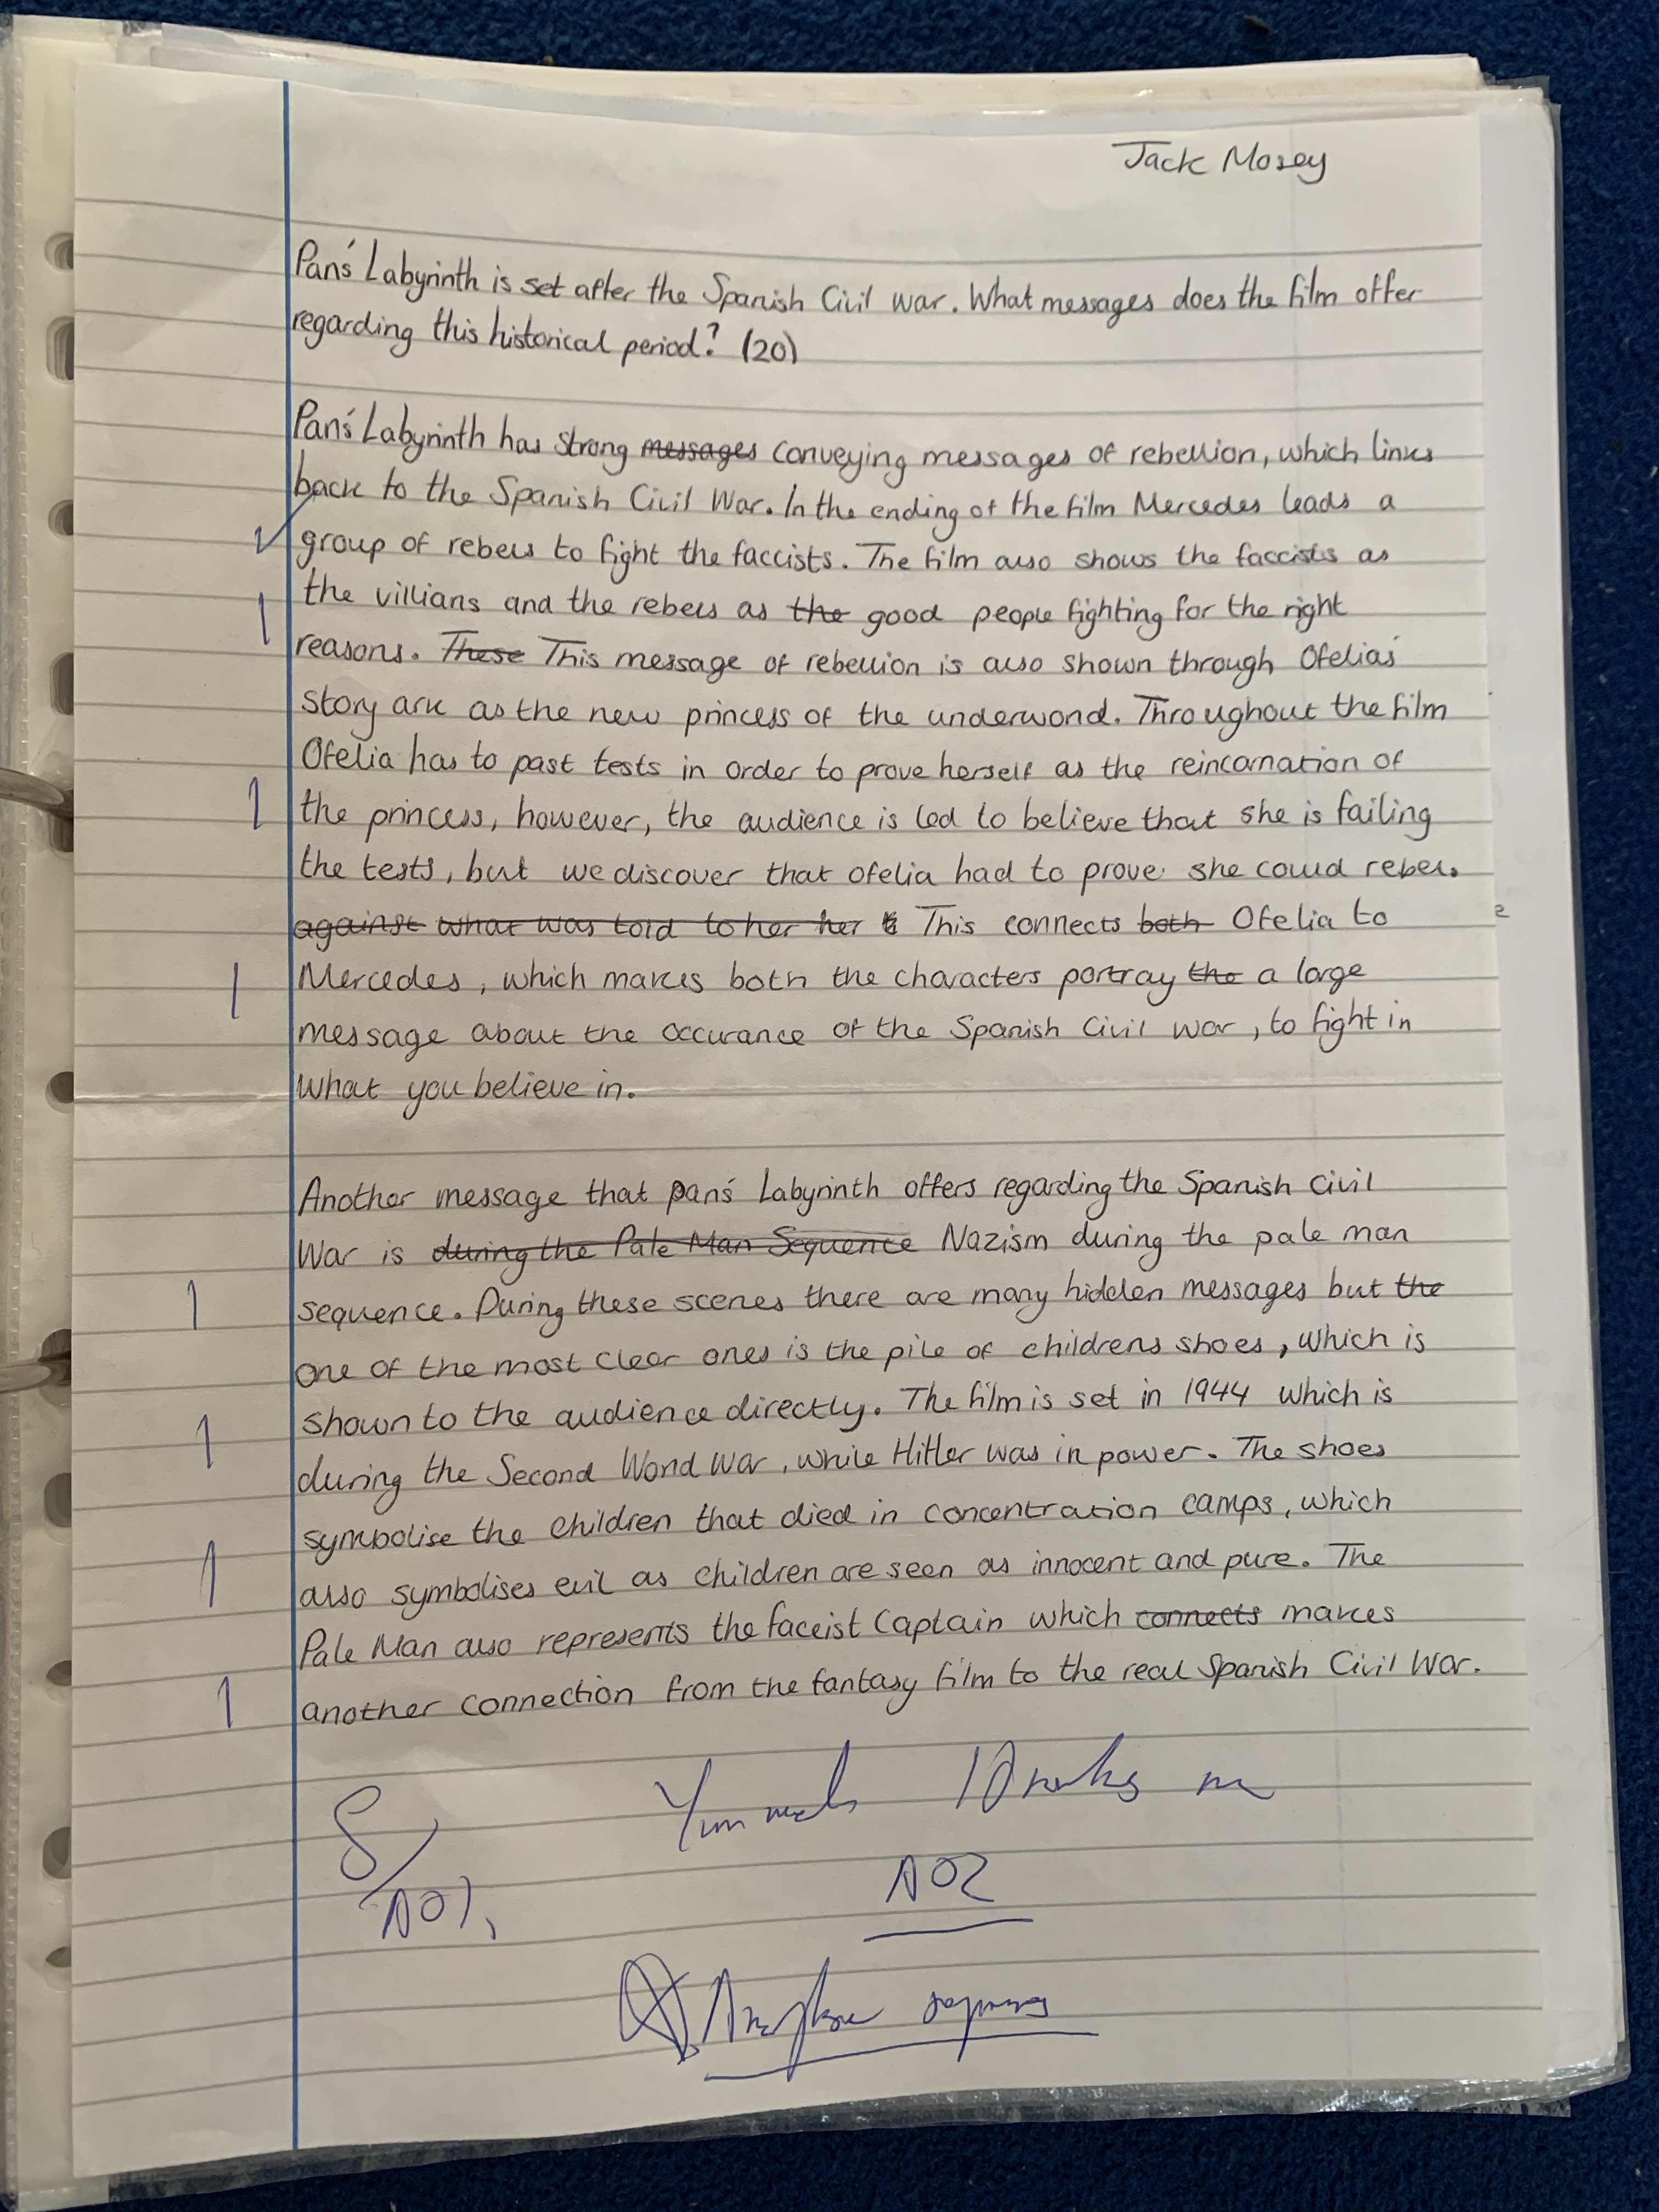 Jack Mosey
Pan's Labyrinth is set after the Spanish Civil war. What messages does the film offer
regarding this historical period? (20)
Pan's Labyrinth has strong messages conveying messages of rebellion, which links
back to the Spanish Civil War. In the ending of the film Mercedes leads a
group of rebels to fight the faccists. The film also shows the faccists as
the villians and the rebels as the good people fighting for the right
reasons. These This message of rebellion is also shown through Ofelia's
story ark as the new princess of the underworld. Throughout the film
Ofelia has to past tests in order to prove herself as the reincarnation of
the princess, however, the audience is led to believe that she is failing
the tests, but we discover that Ofelia had to prove she could rebel.
against what was told to her her This connects both Ofelia to
Mercedes, which makes both the characters portray the a large
message about the occurance of the Spanish Civil war, to fight in
what you believe in.
Another message that pan's Labyrinth offers regarding the Spanish Civil
War is during the Pale Man Sequence Nazism during the pale man
sequence. During these scenes there are many hidden messages but the
one of the most clear ones is the pile of childrens shoes, which is
shown to the audience directly. The film is set in 1944 which is
during the Second World War, while Hitler was in power. The shoes
symbolise the children that died in concentration camps, which
also symbolises evil as children are seen as innocent and pure. The
Pale Man also represents the faccist Captain which connects makes
another connection from the fantasy film to the real Spanish Civil War.
AO2